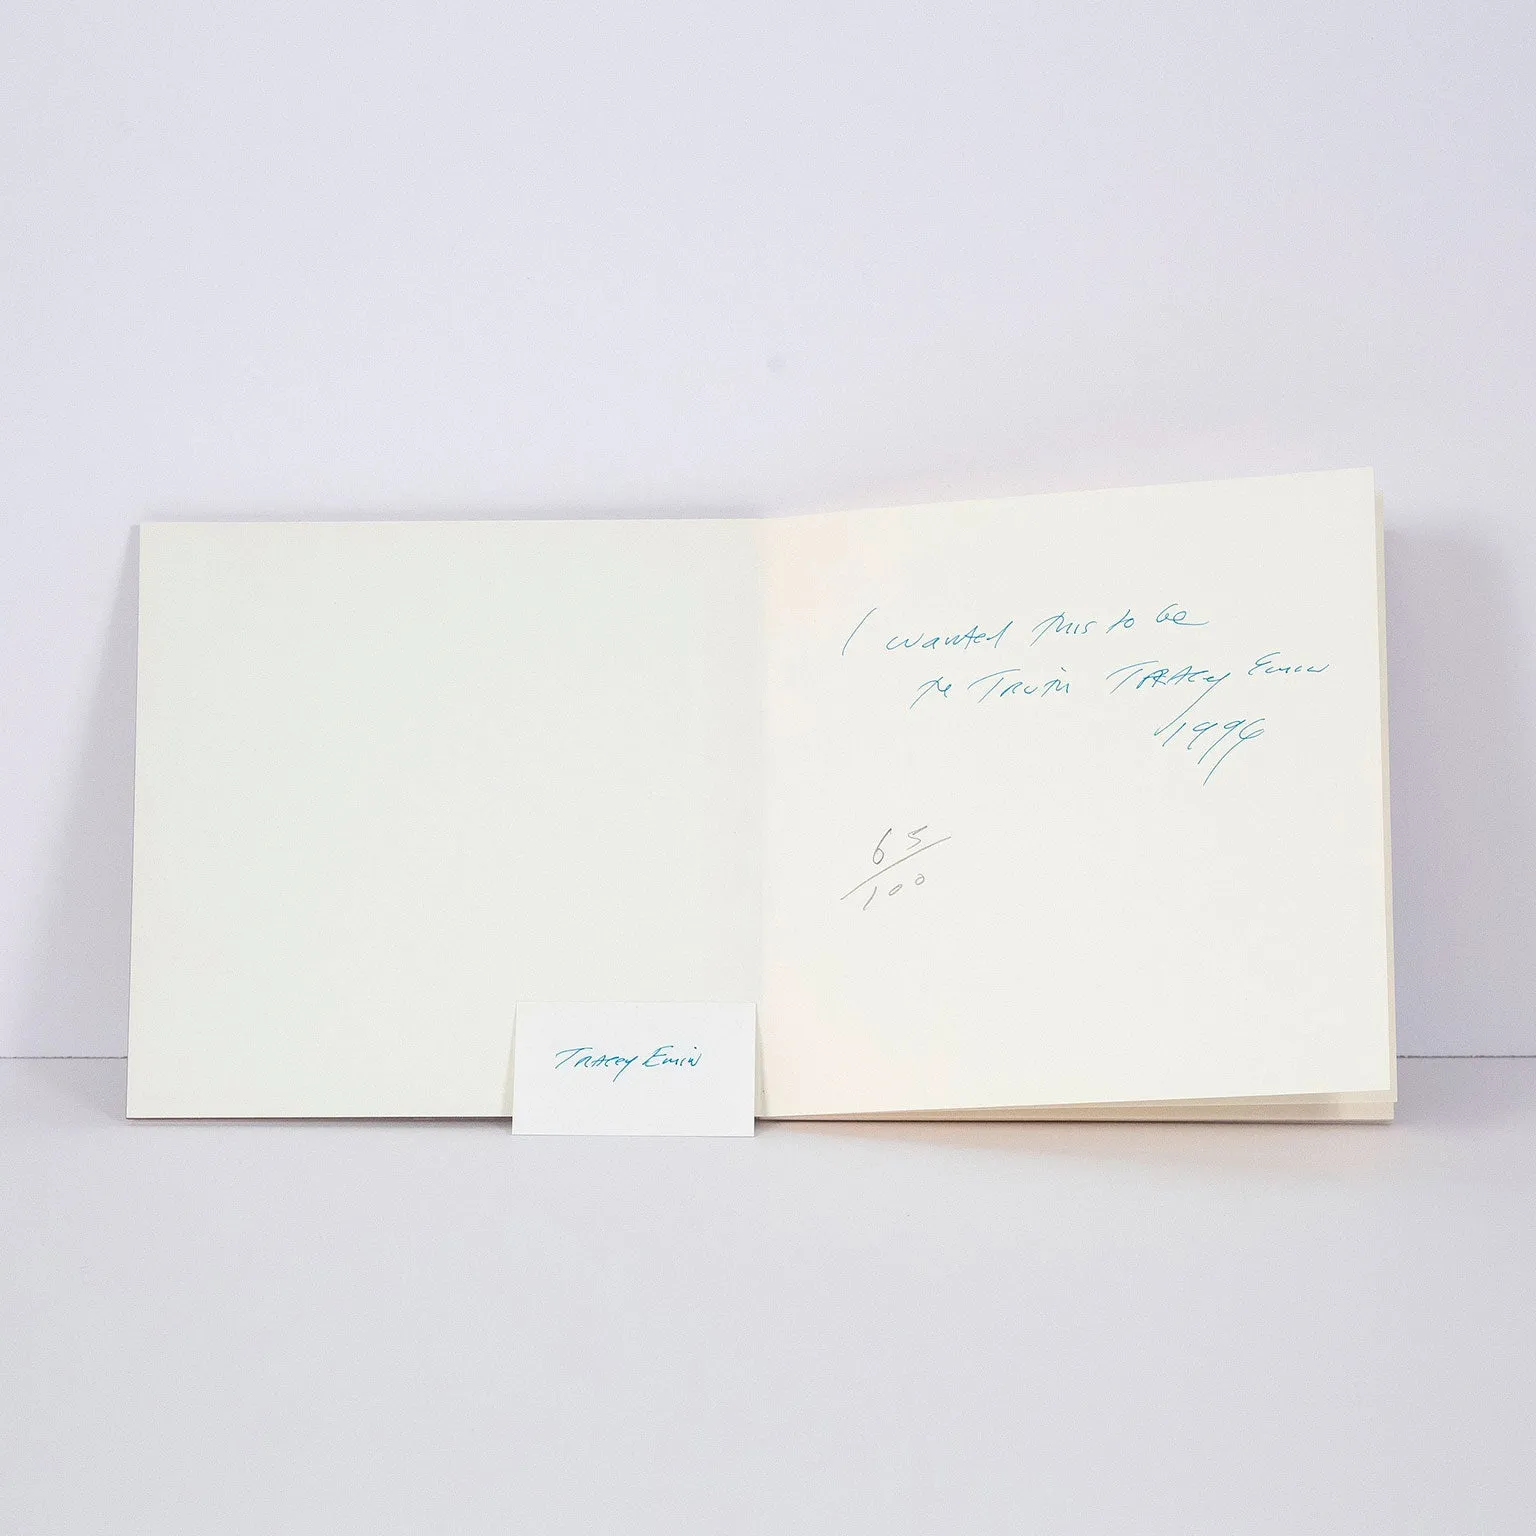 I wanted this to be
the Truth Tracey Emin
1996
65
100
Tracey Emin